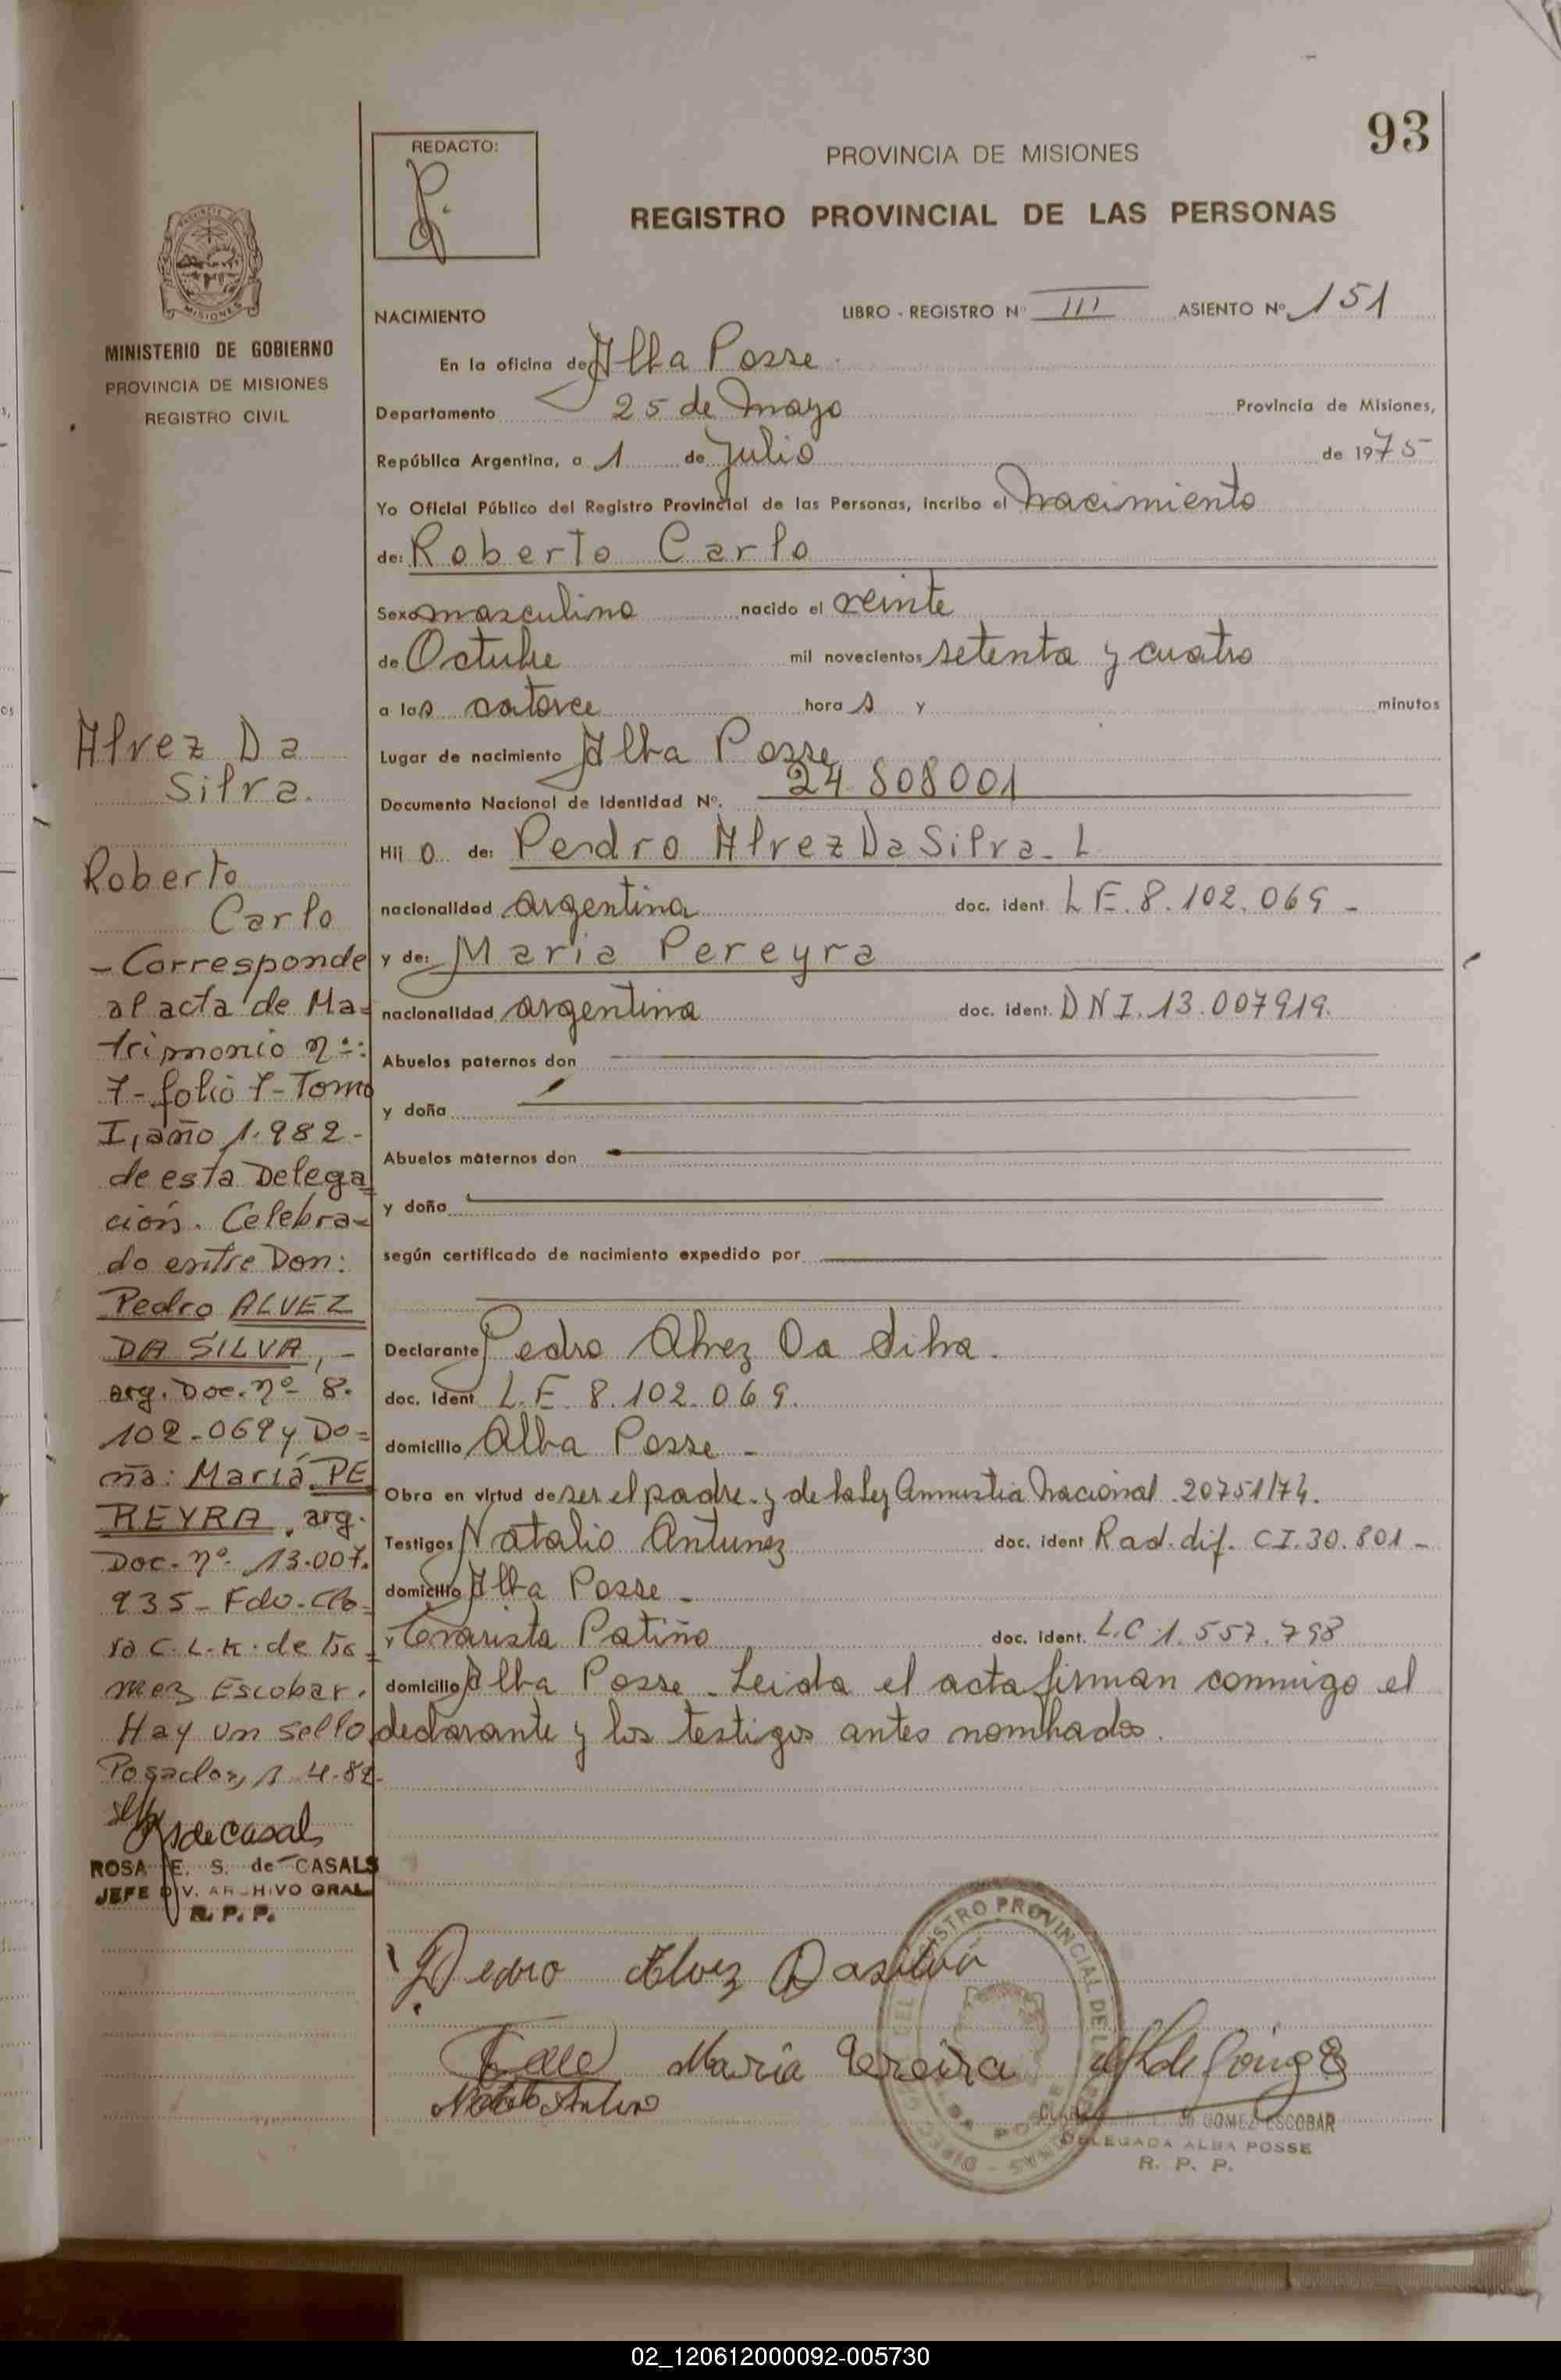 93
REDACTO:
PROVINCIA DE MISIONES
REGISTRO PROVINCIAL DE LAS PERSONAS
MISIONES
MINISTERIO DE GOBIERNO
PROVINCIA DE MISIONES
REGISTRO CIVIL
NACIMIENTO LIBRO - REGISTRO Nº III ASIENTO Nº 151
En la oficina de Alba Posse
Departamento 25 de Mayo Provincia de Misiones,
República Argentina, a 1 de Julio de 1975
Yo Oficial Público del Registro Provincial de las Personas, incribo el nacimiento
de: Roberto Carlo
Sexo masculino nacido el veinte
de Octubre mil novecientos setenta y cuatro
a las catorce hora s y minutos
Lugar de nacimiento Alba Posse
Documento Nacional de Identidad Nº. 24.808001
Hij o de: Perdro Alvez Da Silva. L
nacionalidad argentina doc. ident. L E. 8.102.069 -
y de: Maria Pereyra
nacionalidad argentina doc. ident. D N I. 13.007919.
Abuelos paternos don
y doña
Abuelos maternos don
y doña
según certificado de nacimiento expedido por
Declarante Pedro Alvez Da Silva.
doc. ident L.E. 8.102.069.
domicilio Alba Posse -
Obra en virtud de ser el padre. y de la ley Amnistia Nacional 20751/74.
Testigos Natalio Antunez doc. ident Rad. dif. C I. 30.801 -
domicilio Alba Posse -
y Evarista Patiño doc. ident. L.C 1.557.798
domicilio Alba Posse - Leida el acta firman conmigo el
declarante y los testigos antes nombrados.
Alvez Da
Silva.
Roberto
Carlo
- Corresponde
al acta de Ma=
trimonio nº:
7- folio 7- Tomo
I, año 1.982-
de esta Delega
ción. Celebra-
do entre Don:
Pedro ALVEZ
DA SILVA, -
arg. Doc. nº 8.
102-069 y Do=
ña: María PE
REYRA, arg.
Doc- nº- 13.007.
935- Fdo- Clo-
ra C. L. K. de Gó=
mez Escobar.
Hay un sello
Posadas, 1 4-82-
de Casals
ROSA E. S. de CASALS
JEFE DIV. ARCHIVO GRAL
R. P. P.
Pedro Alvez Dasilva
Maria Pereira
de Gómez
GOMEZ ESCOBAR
DELEGADA ALBA POSSE
R. P. P.
02_120612000092-005730